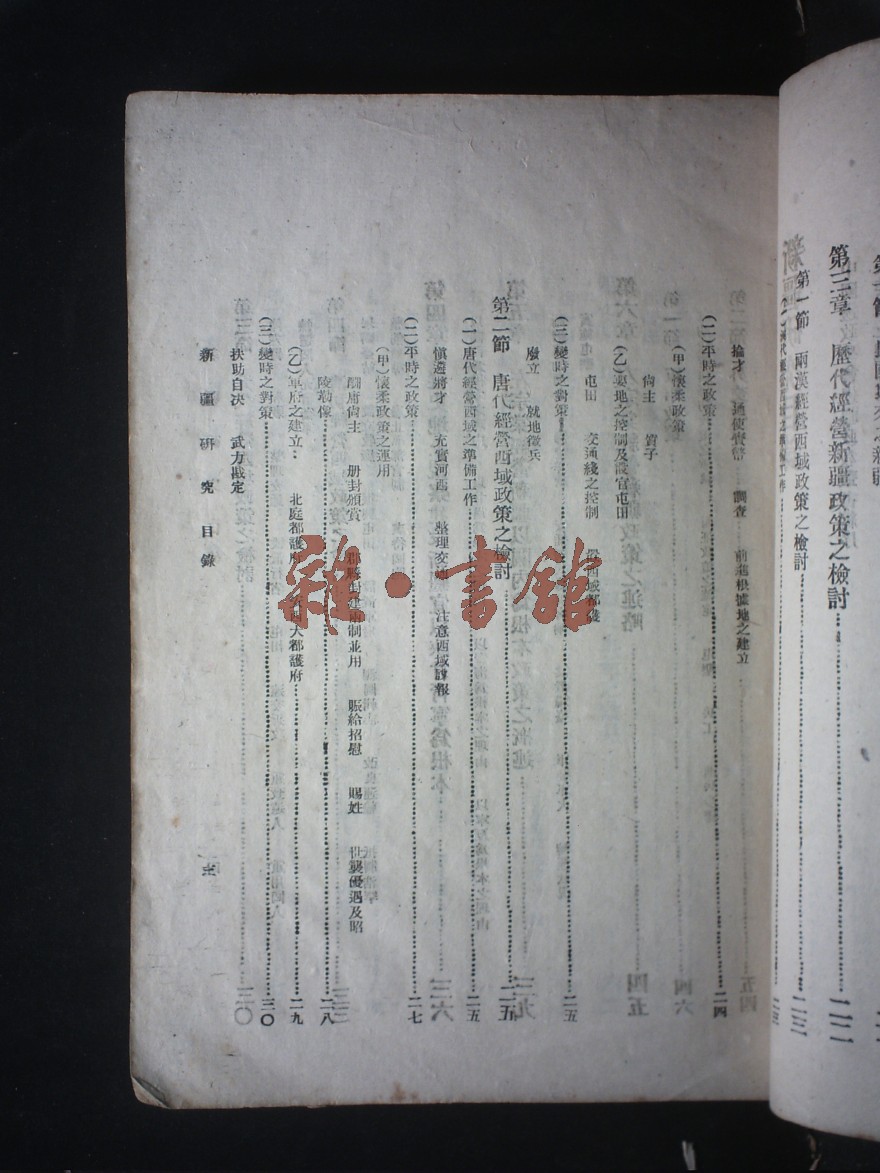 第三章 歷代經營新疆政策之檢討……二二
第一節 兩漢經營西域政策之檢討……二三
掄才 通使賫幣 調查 前進根據地之建立
(二)平時之政策……二四
(甲)懷柔政策
尙主 質子
(乙)要地之控制及設官屯田
屯田 交通綫之控制 設西域都護
(三)變時之對策……二五
廢立 就地徵兵
第二節 唐代經營西域政策之檢討……二五
(一)唐代經營西域之準備工作……二五
愼遴將才 充實河西 整理交通 注意西域諜報
(二)平時之政策……二七
(甲)懷柔政策之運用
酬庸尙主 册封頒賞 郡縣封建兩制並用 賑給招慰 賜姓 世襲優遇及昭
陵勒像……二八
(乙)軍府之建立 北庭都護府 大都護府……二九
(三)變時之對策……三〇
扶助自决 武力戡定
新疆研究目錄
雜·書館